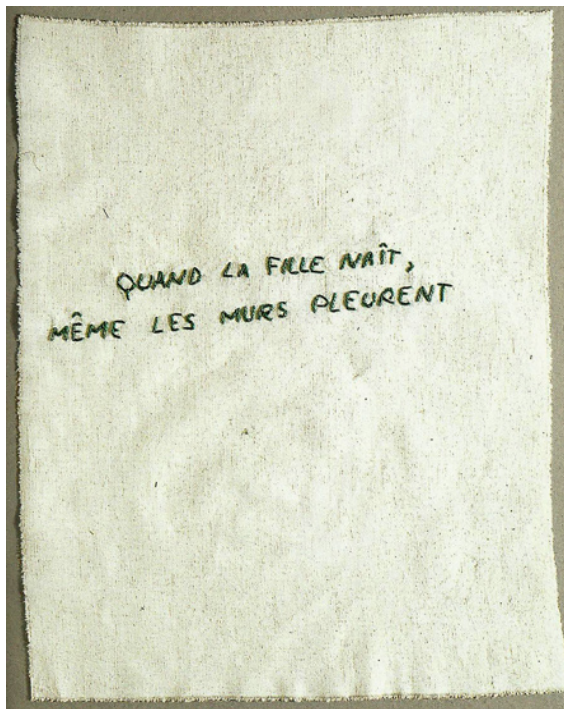 QUAND LA FILLE NAÎT,
MÊME LES MURS PLEURENT